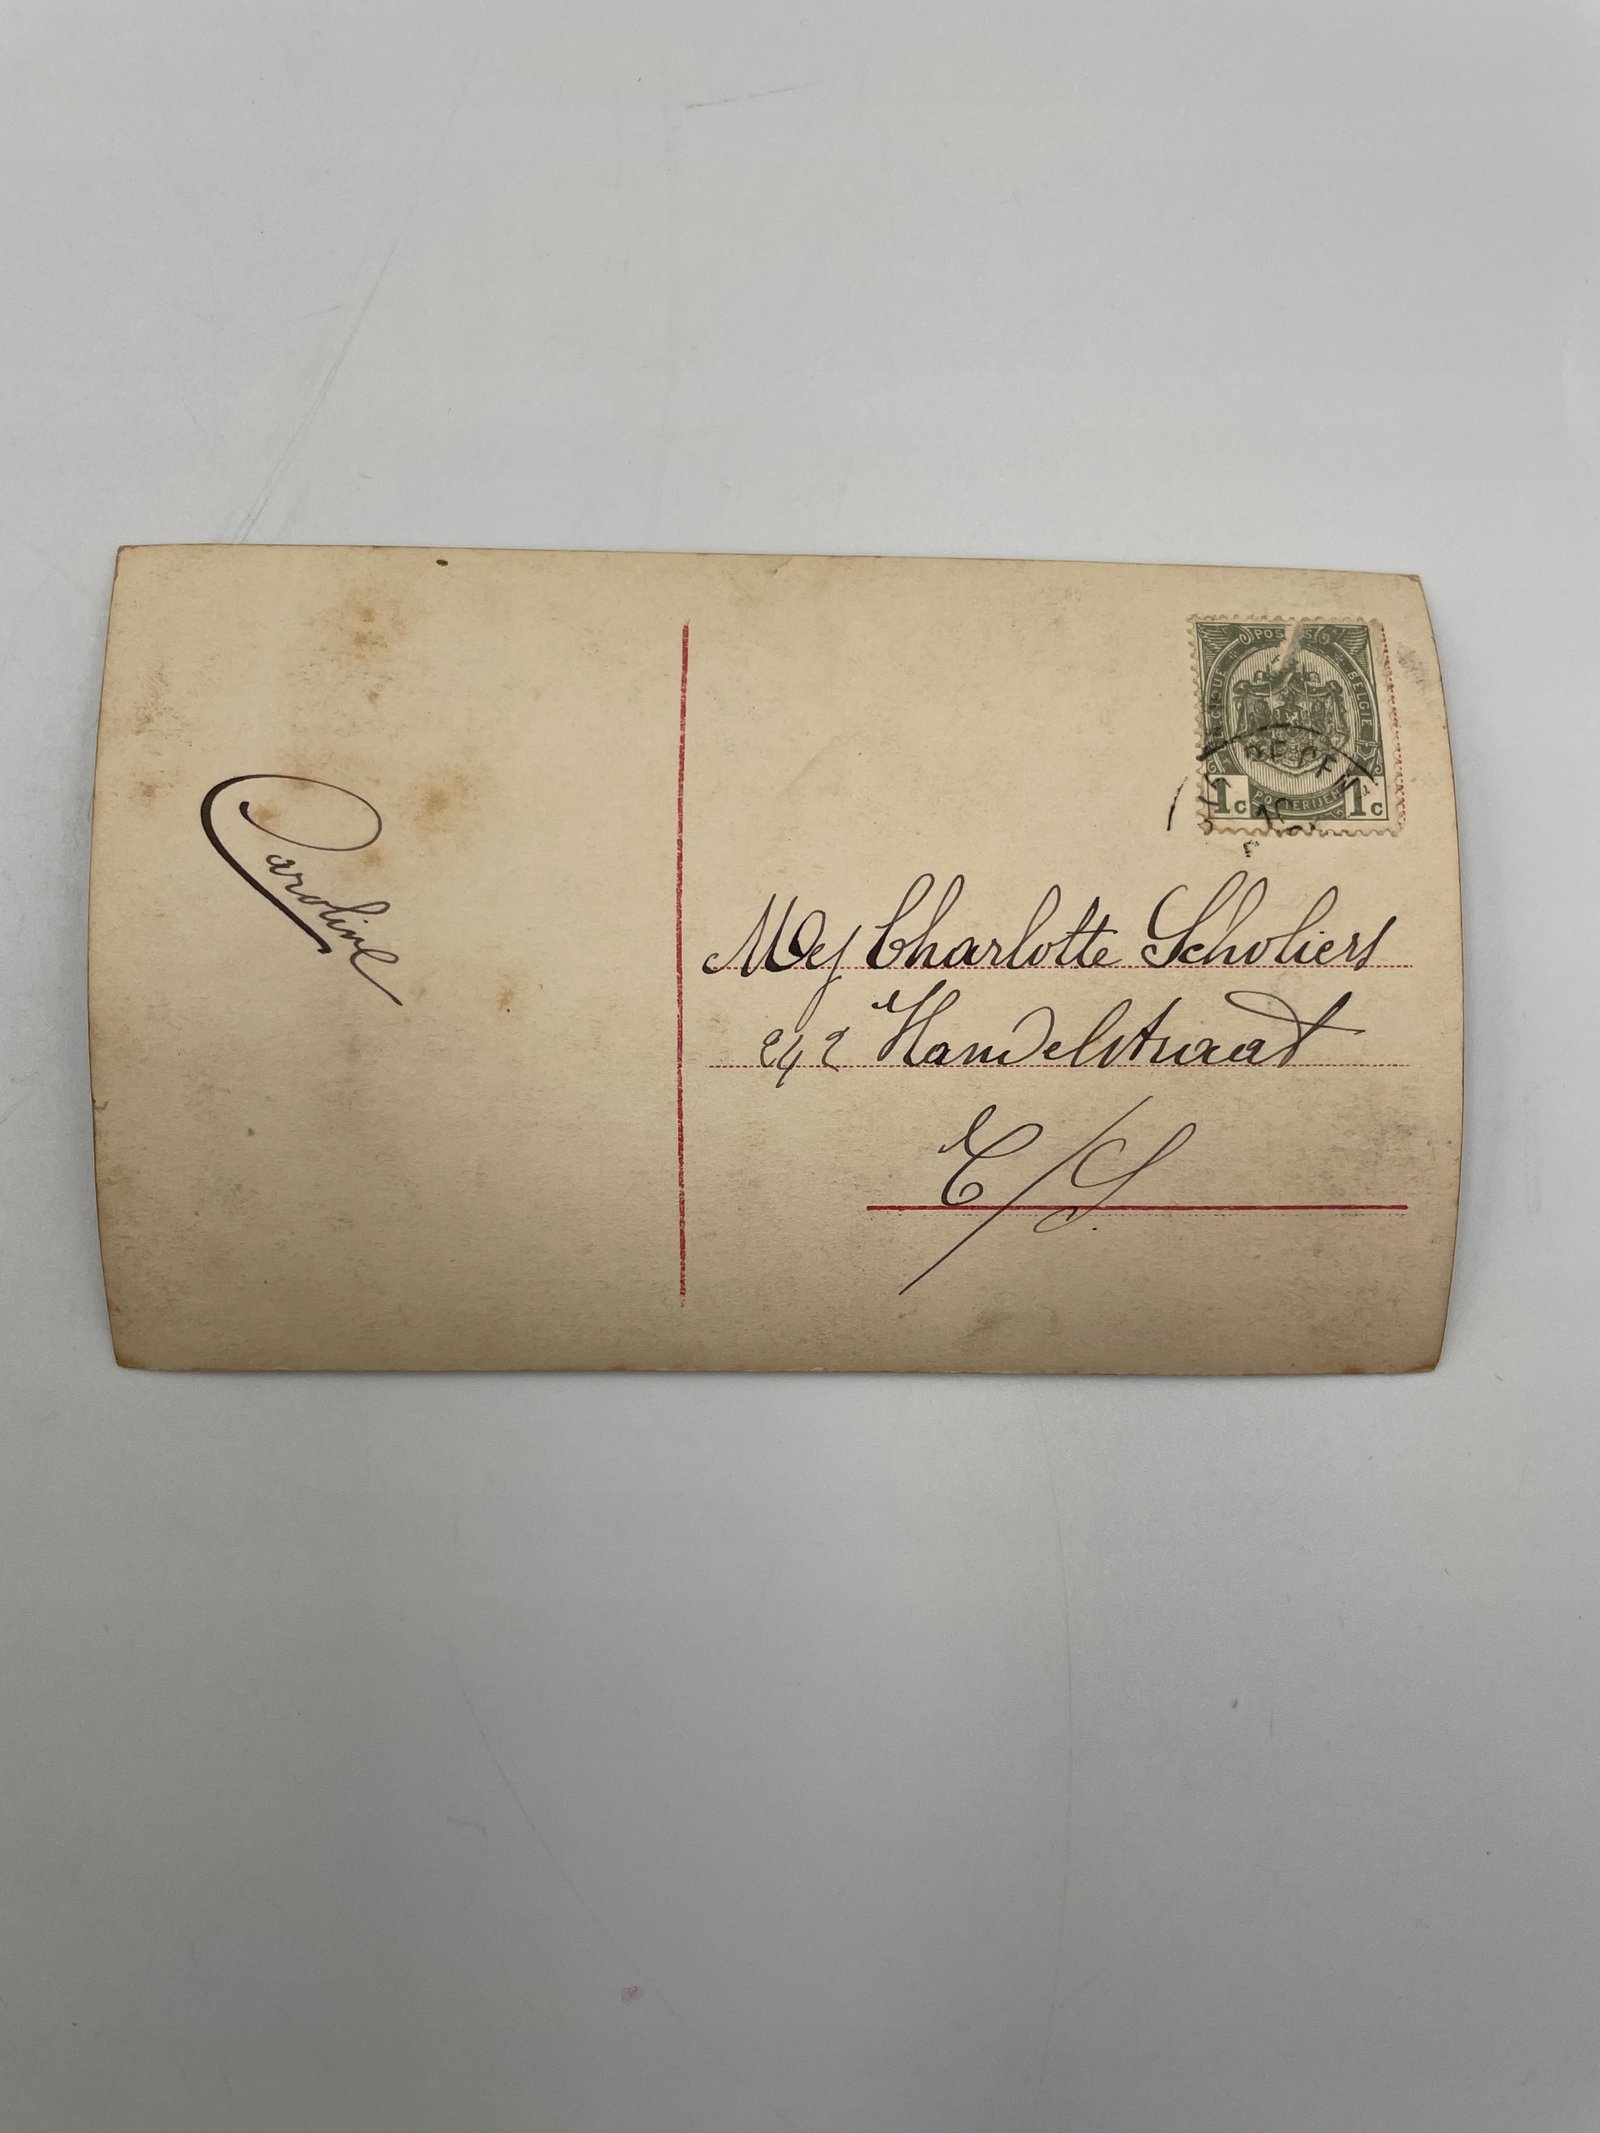 Caroline
POSTES
BELGIQUE
BELGIE
1c POSTERIJEN 1c
Mej Charlotte Scholiers
242 Handelstraat
E/S.